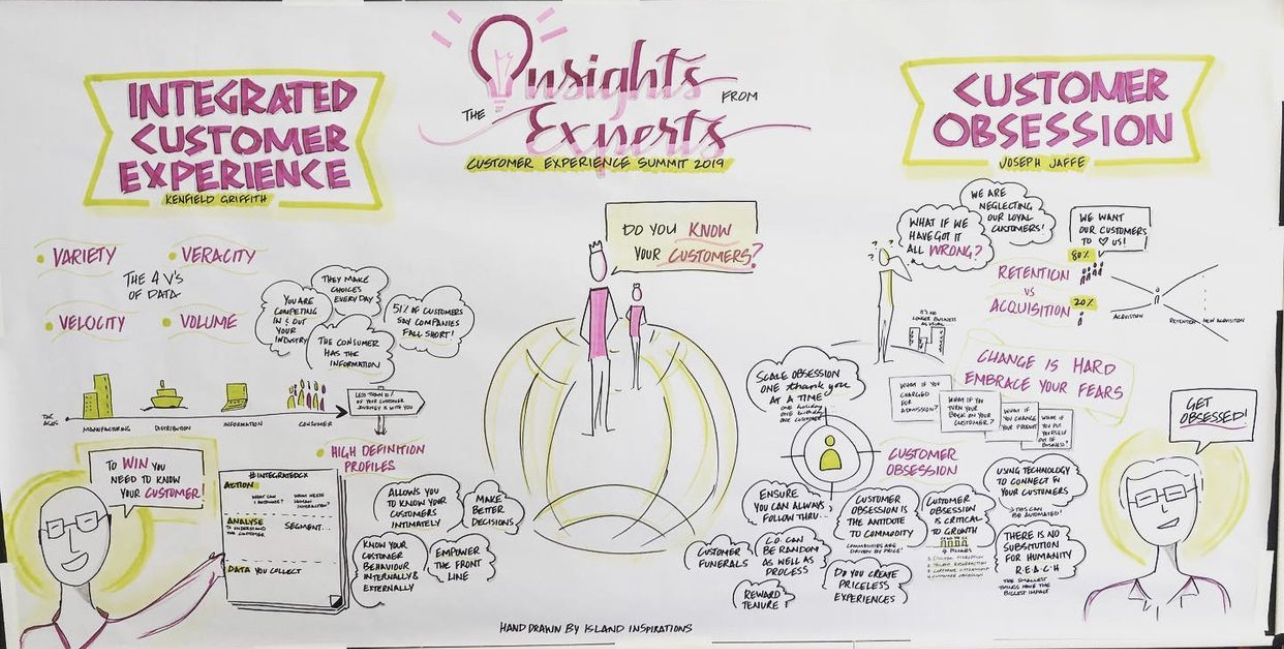 Insights
FROM
THE
Experts
CUSTOMER EXPERIENCE SUMMIT 2019
INTEGRATED
CUSTOMER
EXPERIENCE
KENFIELD GRIFFITH
VARIETY
VERACITY
THE 4 V'S
OF DATA
VELOCITY
VOLUME
THEY MAKE
CHOICES
EVERY DAY
YOU ARE
COMPETING
IN & OUT
YOUR
INDUSTRY
51% OF CUSTOMERS
SAY COMPANIES
FALL SHORT!
THE CONSUMER
HAS THE
INFORMATION
THE
AGES
MANUFACTURING
DISTRIBUTION
INFORMATION
CONSUMER
OF YOUR CUSTOMER
JOURNEY IS WITH YOU
TO WIN YOU
NEED TO KNOW
YOUR CUSTOMER!
#INTEGRATEDCX
ACTION
WHAT CAN
I AUTOMATE?
WHAT NEEDS
HUMAN
INTERACTION?
ANALYSE
TO UNDERSTAND
THE CUSTOMER
SEGMENT...
DATA YOU COLLECT
HIGH DEFINITION
PROFILES
ALLOWS YOU
TO KNOW YOUR
CUSTOMERS
INTIMATELY
MAKE
BETTER
DECISIONS
KNOW YOUR
CUSTOMER
BEHAVIOUR
INTERNALLY &
EXTERNALLY
EMPOWER
THE FRONT
LINE
DO YOU KNOW
YOUR CUSTOMERS?
HAND DRAWN BY ISLAND INSPIRATIONS
CUSTOMER
OBSESSION
JOSEPH JAFFE
WE ARE
NEGLECTING
OUR LOYAL
CUSTOMERS!
WHAT IF WE
HAVE GOT IT
ALL WRONG?
WE WANT
OUR CUSTOMERS
TO ♥ US!
? ? ?
80%
RETENTION
VS
ACQUISITION
20%
ACQUISITION
RETENTION
NEW ACQUISITION
IT'S NO
LONGER BUSINESS
AS USUAL
CHANGE IS HARD
EMBRACE YOUR FEARS
WHAT IF YOU
CHARGED
FOR
ADMISSION?
WHAT IF YOU
TURN YOUR
BACK ON YOUR
CUSTOMER?
WHAT IF
YOU CHANGE
YOUR
WHAT IF
YOU PUT
YOURSELF
OUT OF
BUSINESS?
SCALE OBSESSION
ONE thank you
AT A TIME
ONE
CUSTOMER
CUSTOMER
OBSESSION
ENSURE
YOU CAN ALWAYS
FOLLOW THRU...
CUSTOMER
OBSESSION IS
THE ANTIDOTE
TO COMMODITY
COMMODITIES ARE
DRIVEN BY PRICE
CUSTOMER
OBSESSION
IS CRITICAL
TO GROWTH
4 PILLARS
USING TECHNOLOGY
TO CONNECT W
YOUR CUSTOMERS
THIS CAN
BE AUTOMATED!
THERE IS NO
SUBSTITUTION
FOR HUMANITY
R-E-A-C-H
THE SMALLEST
THINGS HAVE THE
BIGGEST IMPACT
CUSTOMER
FUNERALS
C.O. CAN
BE RANDOM
AS WELL AS
PROCESS
REWARD
TENURE!
DO YOU CREATE
PRICELESS
EXPERIENCES
GET
OBSESSED!